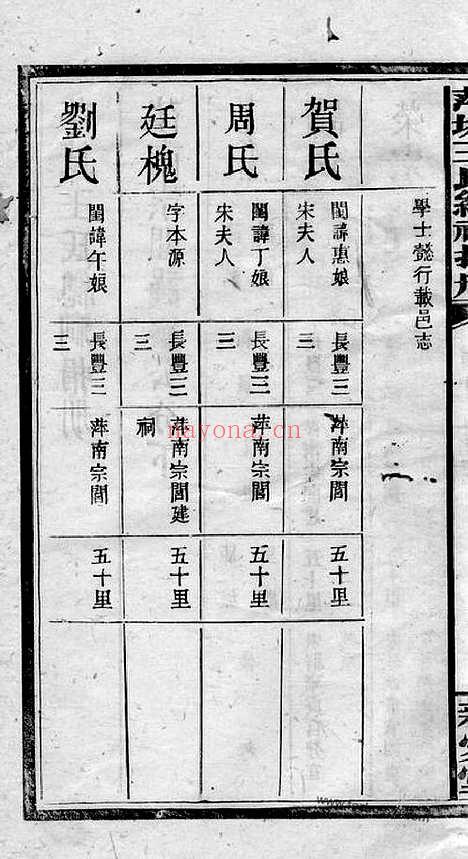 學士懿行載邑志
賀氏
閨諱惠娘
宋夫人
長豐三
三
萍南宗閭
五十里
周氏
閨諱丁娘
宋夫人
長豐三
三
萍南宗閭
五十里
廷槐
字本源
長豐三
三
萍南宗閭建
祠
五十里
劉氏
閨諱午娘
長豐三
三
萍南宗閭
五十里
nayona.cn